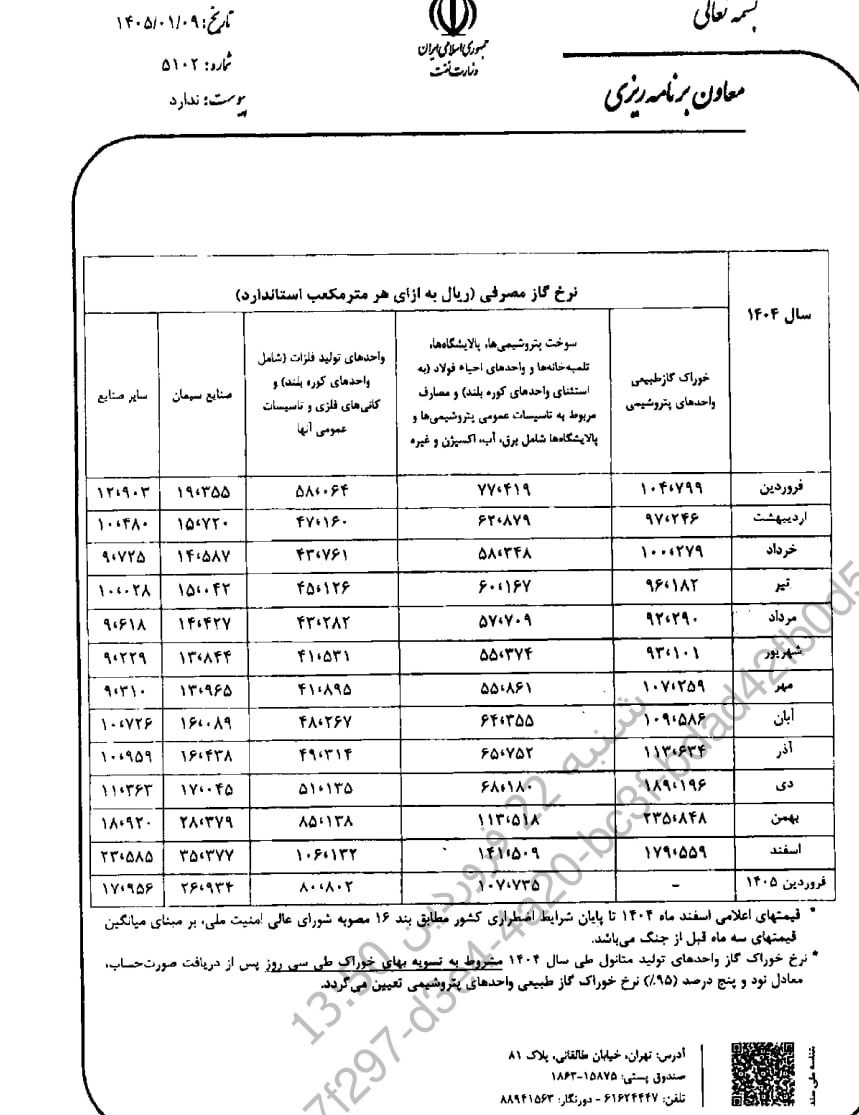 بسمه تعالی
جمهوری اسلامی ایران
وزارت نفت
تاریخ: ۱۴۰۵/۰۱/۰۹
شماره: ۵۱۰۲
پیوست: ندارد
معاون برنامه ریزی
سال ۱۴۰۴ | نرخ گاز مصرفی (ریال به ازای هر مترمکعب استاندارد)
خوراک گازطبیعی
واحدهای پتروشیمی
سوخت پتروشیمی‌ها، پالایشگاه‌ها،
تلمبه‌خانه‌ها و واحدهای احیاء فولاد (به
استثنای واحدهای کوره بلند) و مصارف
مربوط به تاسیسات عمومی پتروشیمی‌ها و
پالایشگاه‌ها شامل برق، آب، اکسیژن و غیره
واحدهای تولید فلزات (شامل
واحدهای کوره بلند) و
کانی‌های فلزی و تاسیسات
عمومی آنها
صنایع سیمان
سایر صنایع
فروردین | ۱۰۴،۷۹۹ | ۷۷،۴۱۹ | ۵۸،۰۶۴ | ۱۹،۳۵۵ | ۱۲،۹۰۳
اردیبهشت | ۹۷،۲۴۶ | ۶۲،۸۷۹ | ۴۷،۱۶۰ | ۱۵،۷۲۰ | ۱۰،۴۸۰
خرداد | ۱۰۰،۲۷۹ | ۵۸،۳۴۸ | ۴۳،۷۶۱ | ۱۴،۵۸۷ | ۹،۷۲۵
تیر | ۹۶،۱۸۲ | ۶۰،۱۶۷ | ۴۵،۱۲۶ | ۱۵،۰۴۲ | ۱۰،۰۲۸
مرداد | ۹۲،۲۹۰ | ۵۷،۷۰۹ | ۴۳،۲۸۲ | ۱۴،۴۲۷ | ۹،۶۱۸
شهریور | ۹۳،۱۰۱ | ۵۵،۳۷۴ | ۴۱،۵۳۱ | ۱۳،۸۴۴ | ۹،۲۲۹
مهر | ۱۰۷،۲۵۹ | ۵۵،۸۶۱ | ۴۱،۸۹۵ | ۱۳،۹۶۵ | ۹،۳۱۰
آبان | ۱۰۹،۵۸۶ | ۶۴،۳۵۵ | ۴۸،۲۶۷ | ۱۶،۰۸۹ | ۱۰،۷۲۶
آذر | ۱۱۳،۶۳۴ | ۶۵،۷۵۲ | ۴۹،۳۱۴ | ۱۶،۴۳۸ | ۱۰،۹۵۹
دی | ۱۸۹،۱۹۶ | ۶۸،۱۸۰ | ۵۱،۱۳۵ | ۱۷،۰۴۵ | ۱۱،۳۶۳
بهمن | ۲۳۵،۸۴۸ | ۱۱۳،۵۱۸ | ۸۵،۱۳۸ | ۲۸،۳۷۹ | ۱۸،۹۲۰
اسفند | ۱۷۹،۵۵۹ | ۱۴۱،۵۰۹ | ۱۰۶،۱۳۲ | ۳۵،۳۷۷ | ۲۳،۵۸۵
فروردین ۱۴۰۵ | - | ۱۰۷،۷۳۵ | ۸۰،۸۰۲ | ۲۶،۹۳۴ | ۱۷،۹۵۶
* قیمتهای اعلامی اسفند ماه ۱۴۰۴ تا پایان شرایط اضطراری کشور مطابق بند ۱۶ مصوبه شورای عالی امنیت ملی، بر مبنای میانگین
قیمتهای سه ماه قبل از جنگ می‌باشد.
* نرخ خوراک گاز واحدهای تولید متانول طی سال ۱۴۰۴ مشروط به تسویه بهای خوراک طی سی روز پس از دریافت صورت‌حساب،
معادل نود و پنج درصد (۹۵٪) نرخ خوراک گاز طبیعی واحدهای پتروشیمی تعیین می‌گردد.
آدرس: تهران، خیابان طالقانی، پلاک ۸۱
صندوق پستی: ۱۵۸۷۵-۱۸۶۳
تلفن: ۶۱۶۲۴۴۴۷ - دورنگار: ۸۸۹۴۱۵۶۳
شنبه 22 فروردین 13:50
7f297-d3e4-4a20-bc3f-bdad42fb0d5